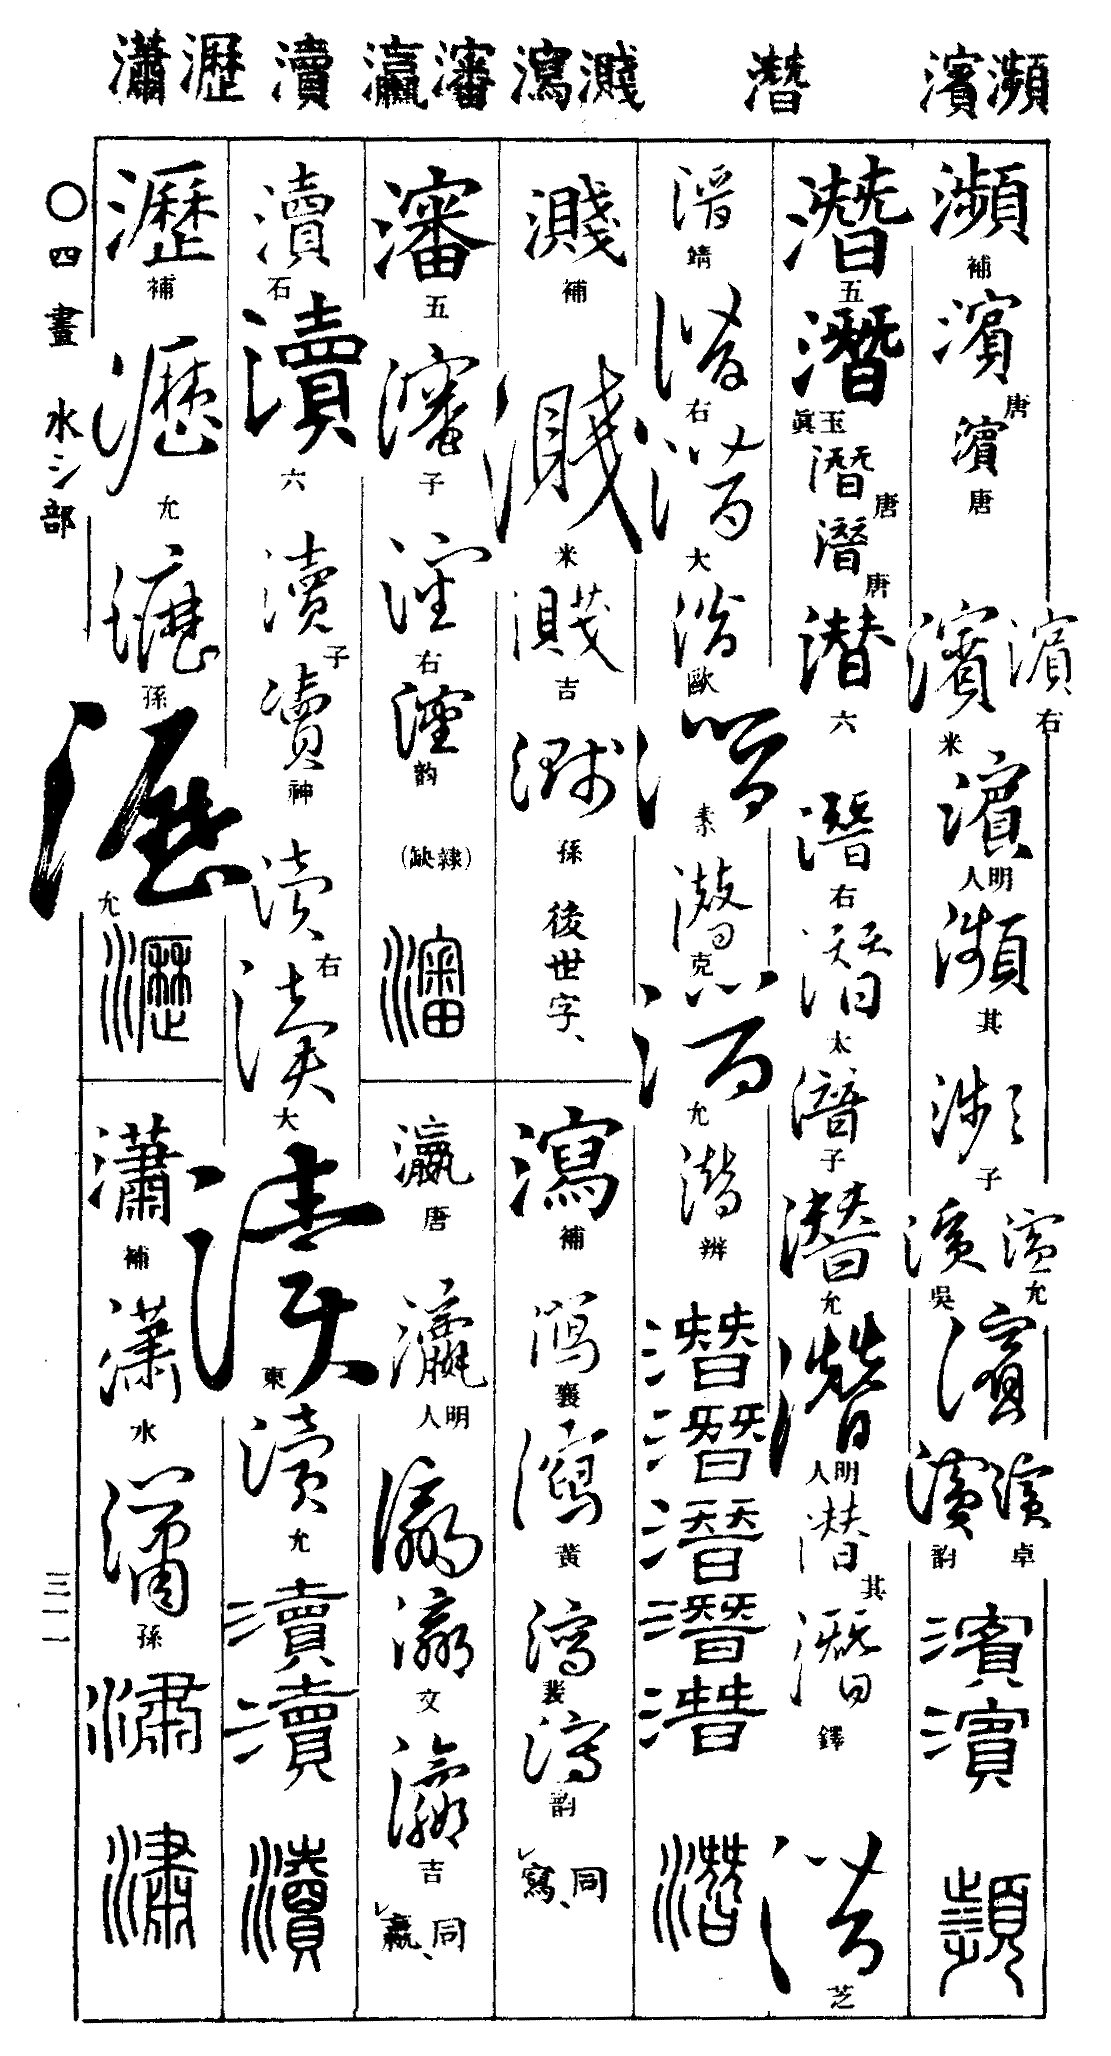 瀕濱 潛 濺瀉 瀋瀛 瀆 瀝瀟
瀕補 濱唐 濱唐 濱右 濱米 濱明人 瀕其 瀕子 濱允 濱吳 濱 濱卓 濱韵 濱 濱 瀕
潛五 潛玉眞 潛唐 潛唐 潛六 潛右 潛太 潛子 潛允 潛明人 潛其 潛鐸 潛芝
潛靖 潛右 潛大 潛歐 潛素 潛克 潛允 潛辨 潛 潛 潛 潛 潛 潛
濺補 濺米 濺吉 濺孫 後世字、
瀉補 瀉襄 瀉黃 瀉裴 瀉韵 寫、同
瀋五 瀋子 瀋右 瀋韵 (隸缺) 瀋
瀛唐 瀛明人 瀛 瀛文 瀛吉 嬴、同
瀆石 瀆六 瀆子 瀆神 瀆右 瀆大 瀆東 瀆允 瀆 瀆 瀆
瀝補 瀝允 瀝孫 瀝允 瀝
瀟補 瀟水 瀟孫 瀟 瀟
〇四畫 水氵部
三一一